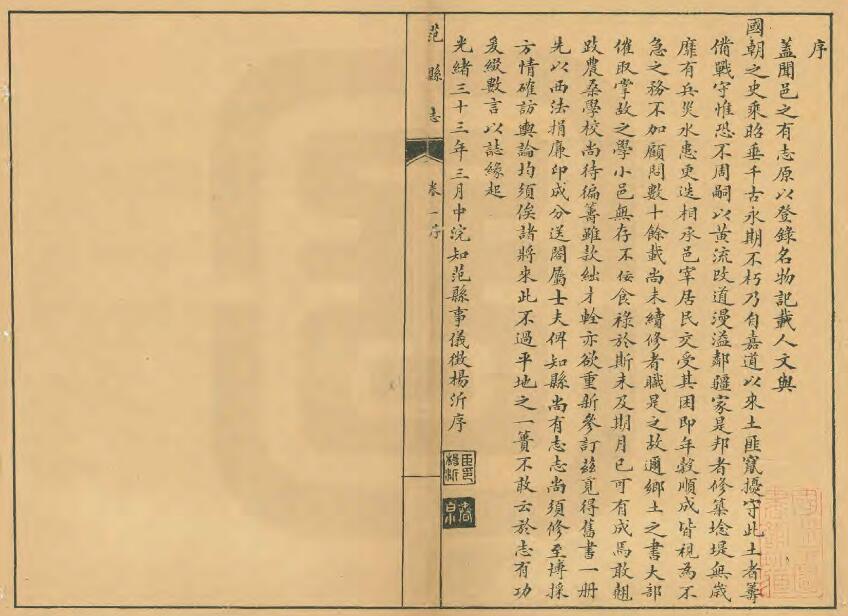 序
蓋聞邑之有志原以登錄名物記載人文與
國朝之史乘昭垂千古永期不朽乃自嘉道以來土匪竄擾守此土者籌
備戰守惟恐不周嗣以黃流改道漫溢鄰疆家是邦者修築埝堤無歲
靡有兵災水患更迭相承邑宰居民交受其困即年穀順成皆視為不
急之務不加顧問數十餘載尚未續修者職是之故邇鄉土之書大部
催取掌故之學小邑無存不佞食祿於斯未及期月已可有成焉敢翹
跂農桑學校尚待徧籌雖款絀才輇亦欲重新參訂茲覓得舊書一冊
先以西法捐廉印成分送闔屬士夫俾知縣尚有志志尚須修至博採
方情確訪輿論均須俟諸將來此不過平地之一簣不敢云於志有功
爰綴數言以誌緣起
光緒三十三年三月中浣知范縣事儀徵楊沂序
范縣志
卷一序